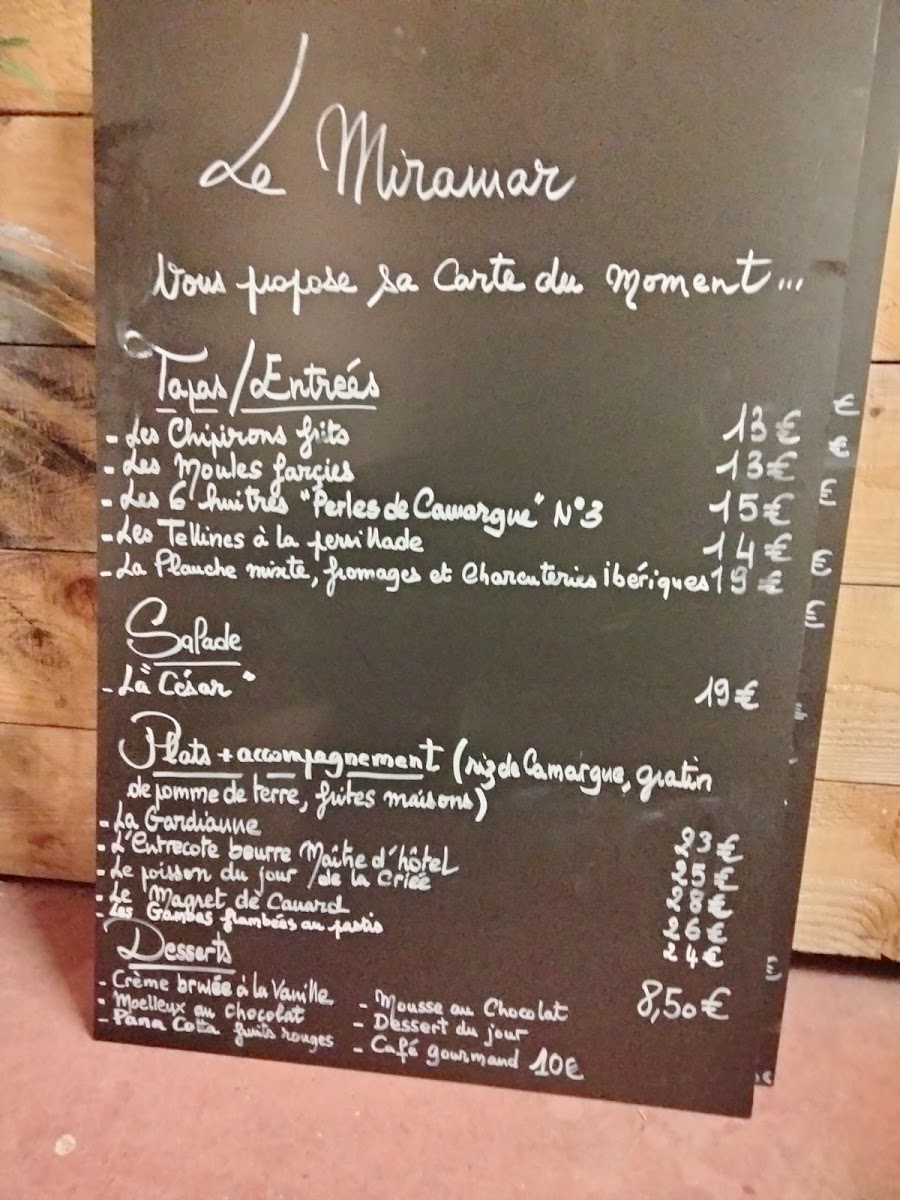 Le Miramar
Vous propose sa Carte du Moment...
Tapas/Entreés
- Les Chipirons frits 13€
- Les Moules farçies 13€
- Les 6 huitres "Perles de Camargue" N°3 15€
- Les Tellines à la persillade 14€
- La Planche mixte, fromages et Charcuteries ibériques 19€
Salade
- La "César" 19€
Plats + accompagnement (riz de Camargue, gratin
de pomme de terre, frites maisons)
- La Gardianne 23€
- L'Entrecote beurre Maître d'hôtel 25€
- Le poisson du jour / de la Criée 28€
- Le Magret de Canard 26€
- Les Gambas flambées au pastis 24€
Desserts
- Crème brulée à la Vanille
- Moelleux au chocolat
- Pana Cotta fruits rouges
- Mousse au Chocolat 8,50€
- Dessert du jour
- Café gourmand 10€
€
€
€
€
€
€
€